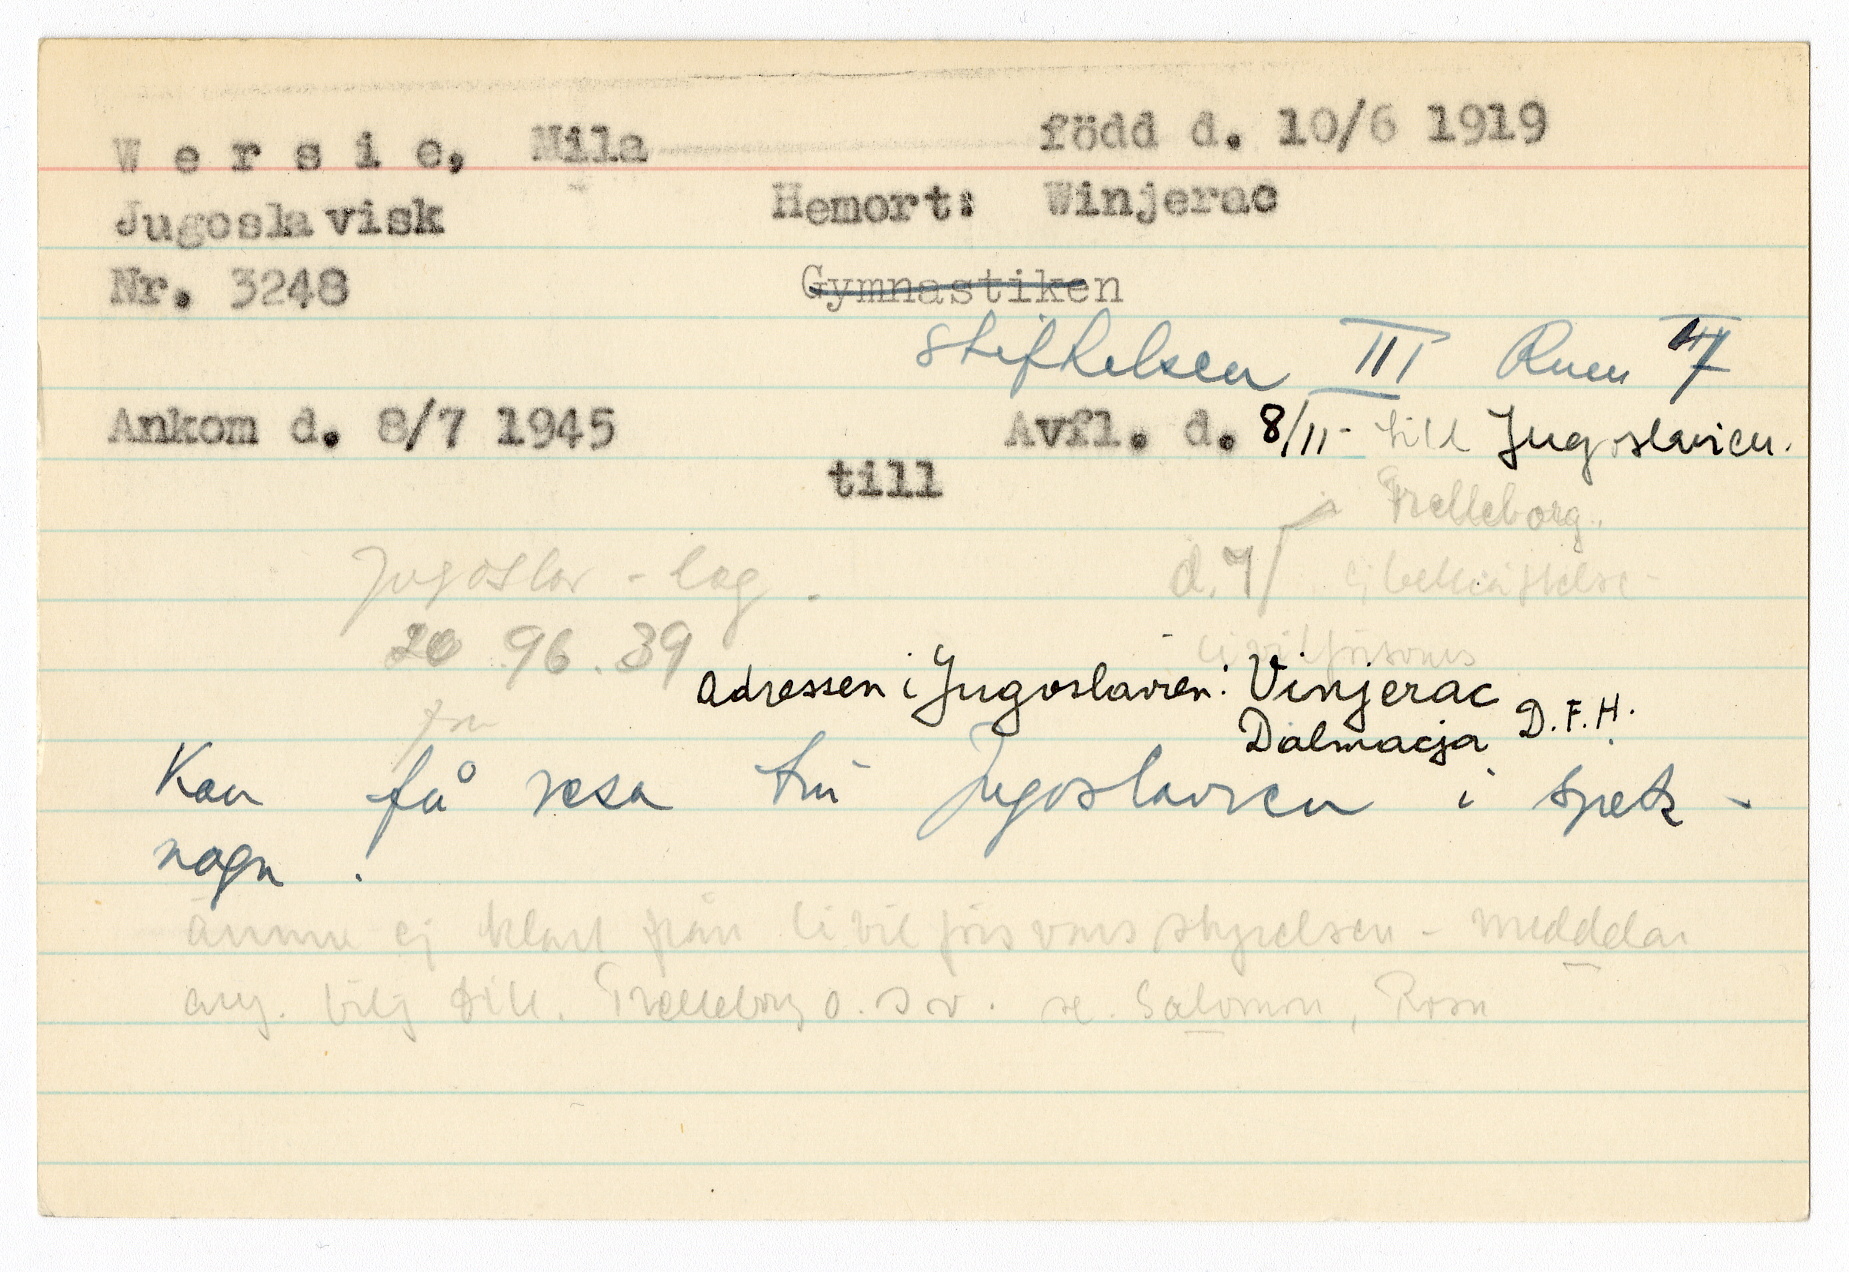 W e r s i e, Mila född d. 10/6 1919
Jugoslavisk Hemort: Winjerac
Nr. 3248 Gymnastiken
Stiftelsen III Rum 7
Ankom d. 8/7 1945 Avfl. d. 8/11- till Jugoslavien.
till
Trelleborg.
Jugoslav - leg. d. 7/ ej bekräftelse
20 96.39 civilförsvars
adressen i Jugoslavien: Vinjerac
Dalmacja D.F.H.
Kan få resa till Jugoslavien i spek-
vagn.
ännu ej klart från Civilförsvarsstyrelsen - meddelar
ang. till. Trelleborg o.s.v. se. Salomon, Rosa